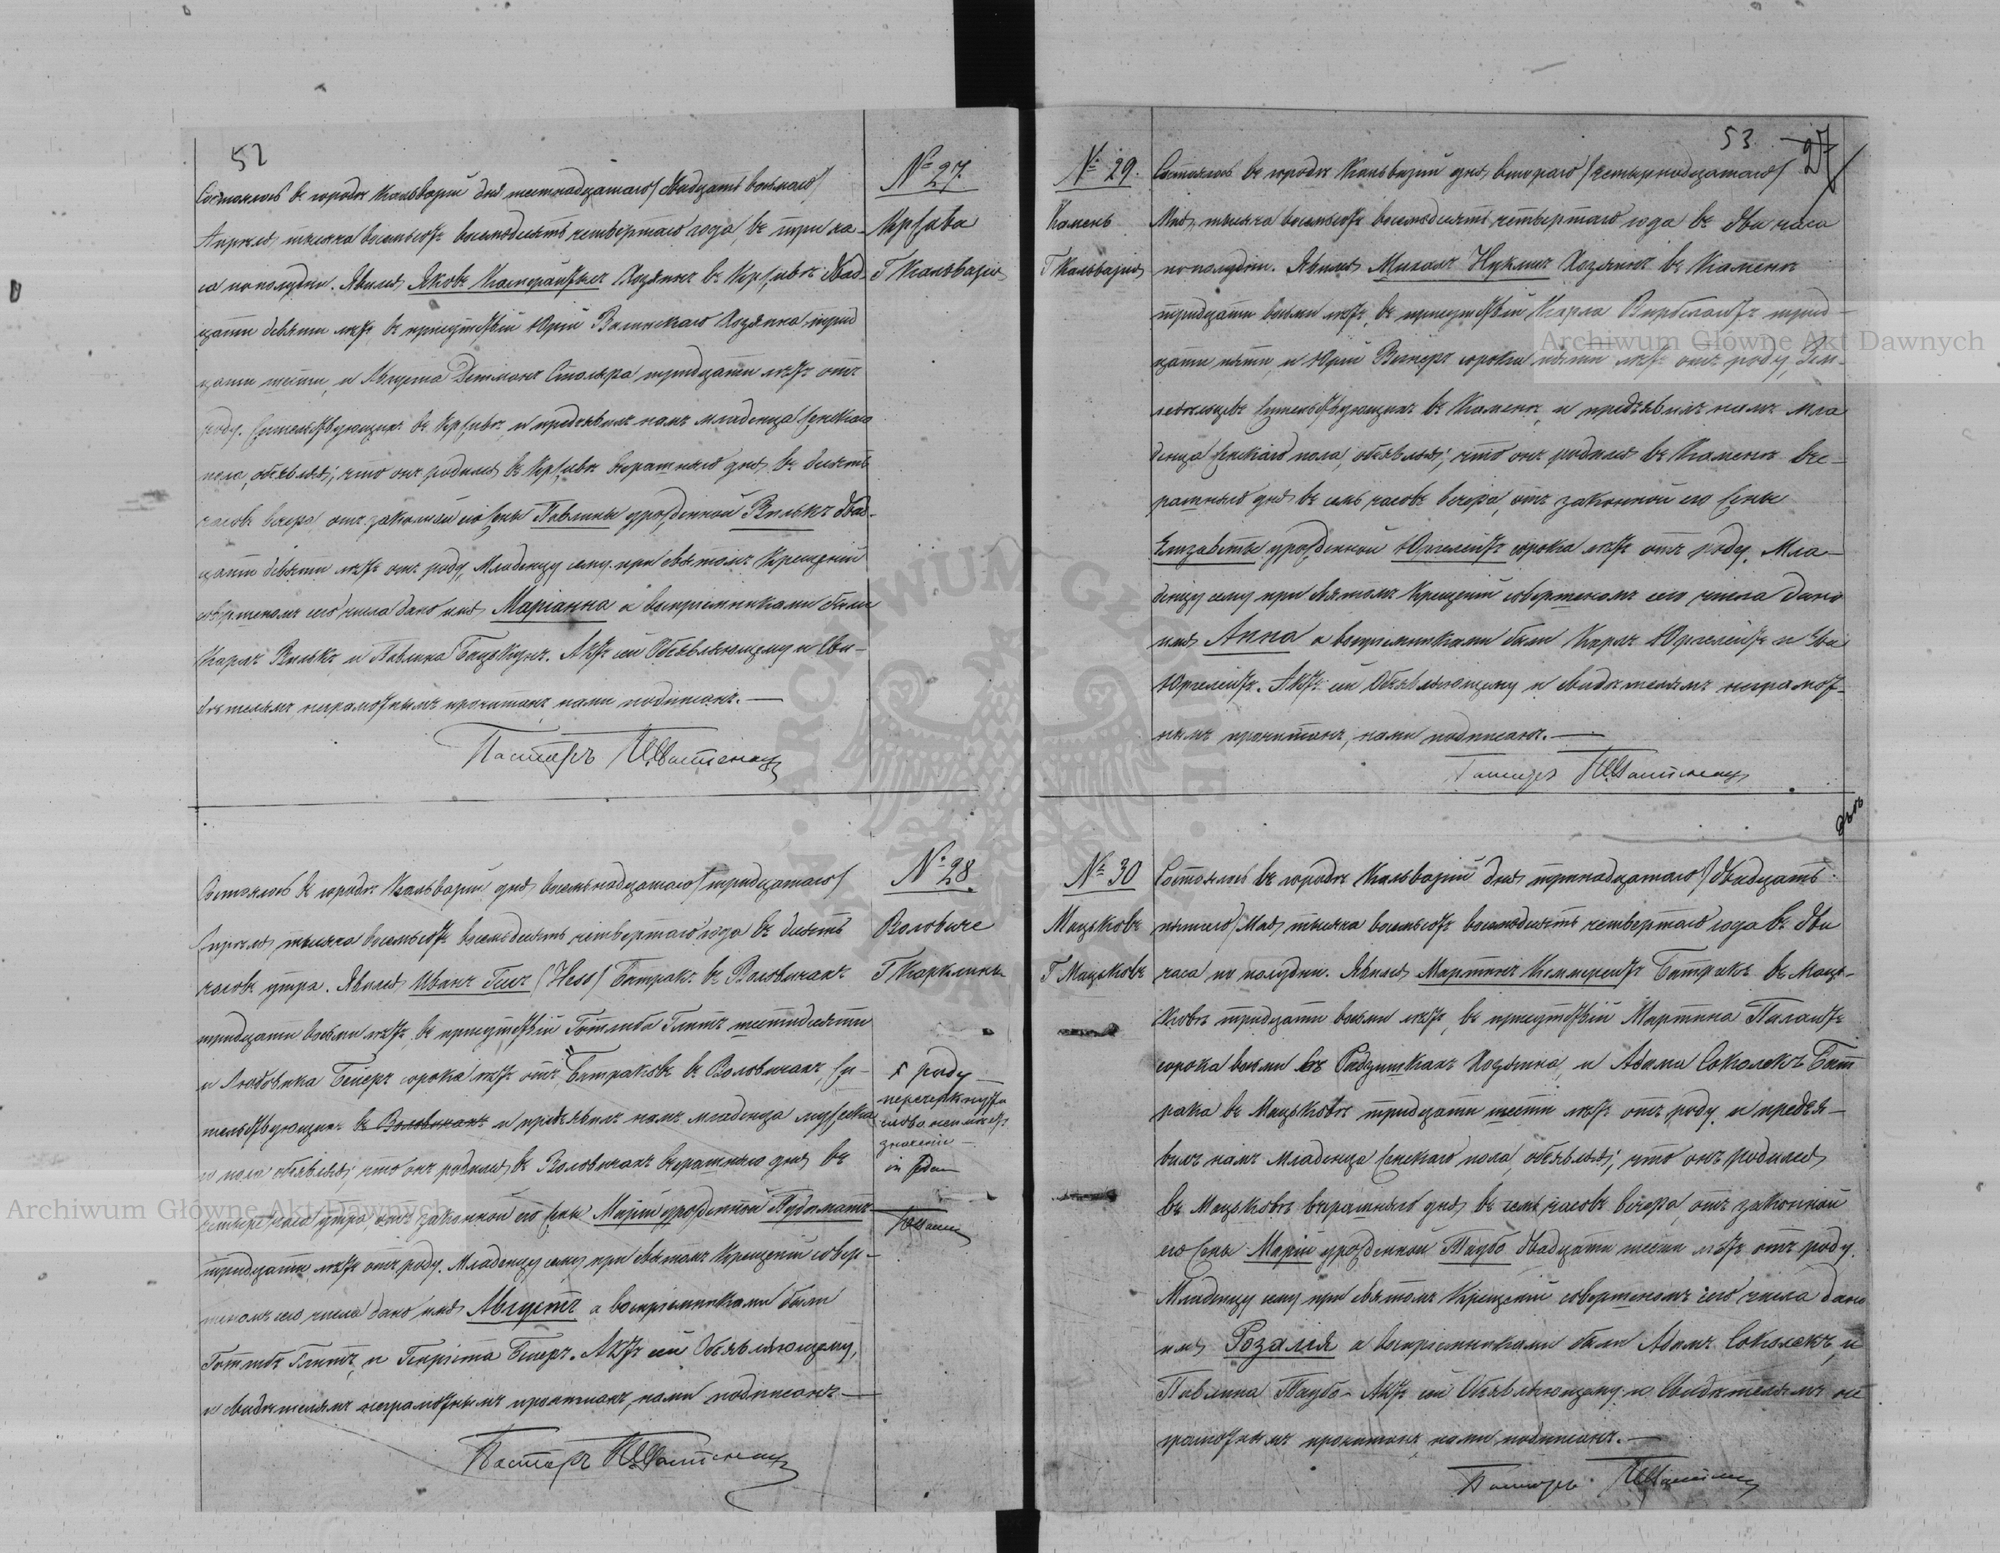 52
№ 27
Кржива
Г Кальварія
Состоялось въ городѣ Кальваріи дня шестнадцатаго/двадцать восьмаго/
Апрѣля тысяча восемьсотъ восемьдесятъ четвертаго года, въ три ча-
са пополудни. Явился Яковъ Каспрайтысъ Хозяинъ въ Крживѣ двад-
цати девяти лѣтъ, въ присутствіи Юрія Хозяина трид
цати шести, и Августа Детманъ Столяра тридцати лѣтъ отъ
роду, жительствующихъ въ Крживѣ, и предъявилъ намъ младенца женскаго
пола, объявляя; что онъ родился въ Крживѣ вчерашняго дня въ десять
часовъ вечера отъ законной его жены Павлины урожденной Вилькъ двад-
цати девяти лѣтъ отъ роду, Младенцу сему при святомъ Крещеніи
совершеномъ сего числа дано имя Маріанна а воспріемниками были
Карлъ Вилькъ и Павлина. Актъ сей Объявляющему и Сви-
дѣтелямъ неграмотнымъ прочитанъ, нами подписанъ. —
Пасторъ
№ 28
Воловиче
Состоялось въ городѣ Кальваріи дня восемьнадцатаго/тридцатаго/
Апрѣля тысяча восемьсотъ восемьдесятъ четвертаго года въ десять
часовъ утра. Явился Иванъ Гесъ (Hess) Батракъ въ Воловичахъ
тридцати восьми лѣтъ, въ присутствіи Готлиба шестидесяти
и Людовика Бейеръ сорока лѣтъ отъ Батраковъ въ Воловичахъ, жи-
тельствующихъ въ Воловичахъ и предъявилъ намъ младенца мужска-
го пола объявляя; что онъ родился въ Воловичахъ вчерашняго дня въ
четыре часа утра, отъ законной его жены Маріи урожденной
тридцати лѣтъ отъ роду. Младенцу сему при святомъ Крещеніи совер-
шеномъ сего числа дано имя Августъ а воспріемниками были
Готлибъ и Генріета Бейеръ. Актъ сей Объявляющему,
и свидѣтелямъ неграмотнымъ прочитанъ, нами подписанъ —
роду
перечеркнута
слова
значенія
Пасторъ
53
27
№ 29.
Камень
Г Кальварія
Состоялось въ городѣ Кальваріи дня втораго/четырнадцатаго/
Мая, тысяча восемьсотъ восемьдесятъ четвертаго года въ два часа
пополудни. Явился Михалъ Хозяинъ въ Каменѣ
тридцати восьми лѣтъ, въ присутствіи Карла трид-
цати пяти, и Юрія сорока пяти лѣтъ отъ роду, Зем-
ледѣльцевъ жительствующихъ въ Каменѣ, и предъявилъ намъ мла
денца женскаго пола, объявляя; что онъ родился въ Каменѣ вче-
рашняго дня въ семь часовъ вечера, отъ законной его жены
Елизаветы урожденной Юргелейтъ сорока лѣтъ отъ роду. Мла-
денцу сему при святомъ Крещеніи совершеномъ сего числа дано
имя Анна а воспріемниками были Карлъ Юргелейтъ и Ева
Юргелейтъ. Актъ сей Объявляющему и свидѣтелямъ неграмот-
нымъ прочитанъ, нами подписанъ. —
Пасторъ
№ 30
Мацьковъ
Г Мацьковъ
Состоялось въ городѣ Кальваріи дня тринадцатаго/двадцать
пятаго/Мая, тысяча восемьсотъ восемьдесятъ четвертаго года въ два
часа по полудни. Явился Мартинъ Батракъ въ Маць-
ковѣ тридцати восьми лѣтъ, въ присутствіи Мартина
сорока восьми въ Хозяина, и Адама Соколекъ Бат
рака въ Мацьковѣ тридцати шести лѣтъ отъ роду, и предъя-
вилъ намъ младенца женскаго пола, объявляя; что онъ родился
въ Мацьковѣ вчерашняго дня въ семь часовъ вечера, отъ законной
его жены Маріи урожденной Таубе двадцати шести лѣтъ отъ роду.
Младенцу сему при святомъ Крещеніи совершеномъ сего числа дано
имя Розалія а воспріемниками были Адамъ Соколекъ и
Павлина Таубе. Актъ сей Объявляющему и Свидѣтелямъ не
грамотнымъ прочитанъ нами подписанъ. —
Пасторъ
Archiwum Główne Akt Dawnych
Archiwum Główne Akt Dawnych
ARCHIWUM GŁÓWNE